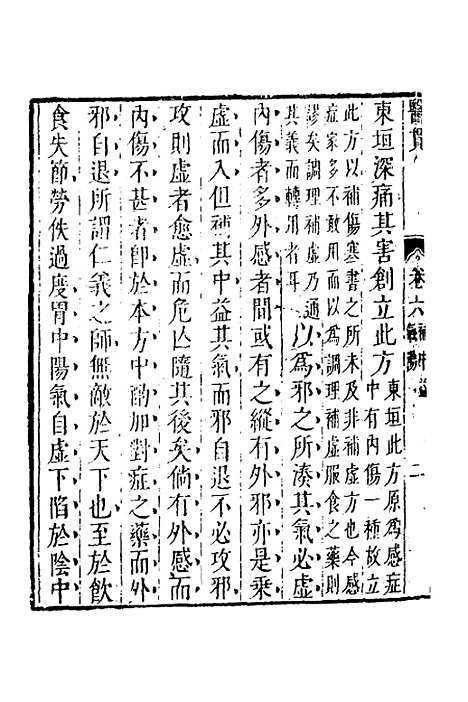 醫貫 卷六 補中益氣湯 二
東垣深痛其害創立此方東垣此方原為感症
中有內傷一種故立
此方以補傷寒書之所未及非補虛方也今感
症家多不敢用而以為調理補虛服食之藥則
謬矣調理補虛乃通
其義而轉用者耳以為邪之所湊其氣必虛
內傷者多外感者間或有之縱有外邪亦是乗
虛而入但補其中益其氣而邪自退不必攻邪
攻則虛者愈虛而危亾隨其後矣倘有外感而
內傷不甚者卽於本方中酌加對症之藥而外
邪自退所謂仁義之師無敵於天下也至於飲
食失節勞佚過度胃中陽氣自虛下陷於陰中